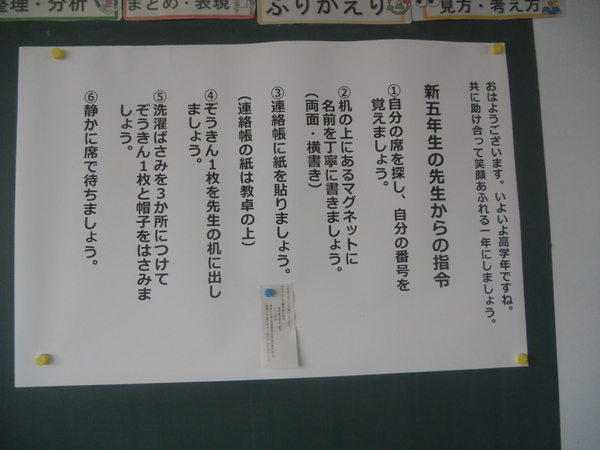 整理・分析
まとめ・表現
ふりかえり
見方・考え方
おはようございます。いよいよ高学年ですね。
共に助け合って笑顔あふれる一年にしましょう。
新五年生の先生からの指令
①自分の席を探し、自分の番号を
覚えましょう。
②机の上にあるマグネットに
名前を丁寧に書きましょう。
(両面・横書き)
③連絡帳に紙を貼りましょう。
(連絡帳の紙は教卓の上)
④ぞうきん1枚を先生の机に出し
ましょう。
⑤洗濯ばさみを3か所につけて
ぞうきん1枚と帽子をはさみま
しょう。
⑥静かに席で待ちましょう。